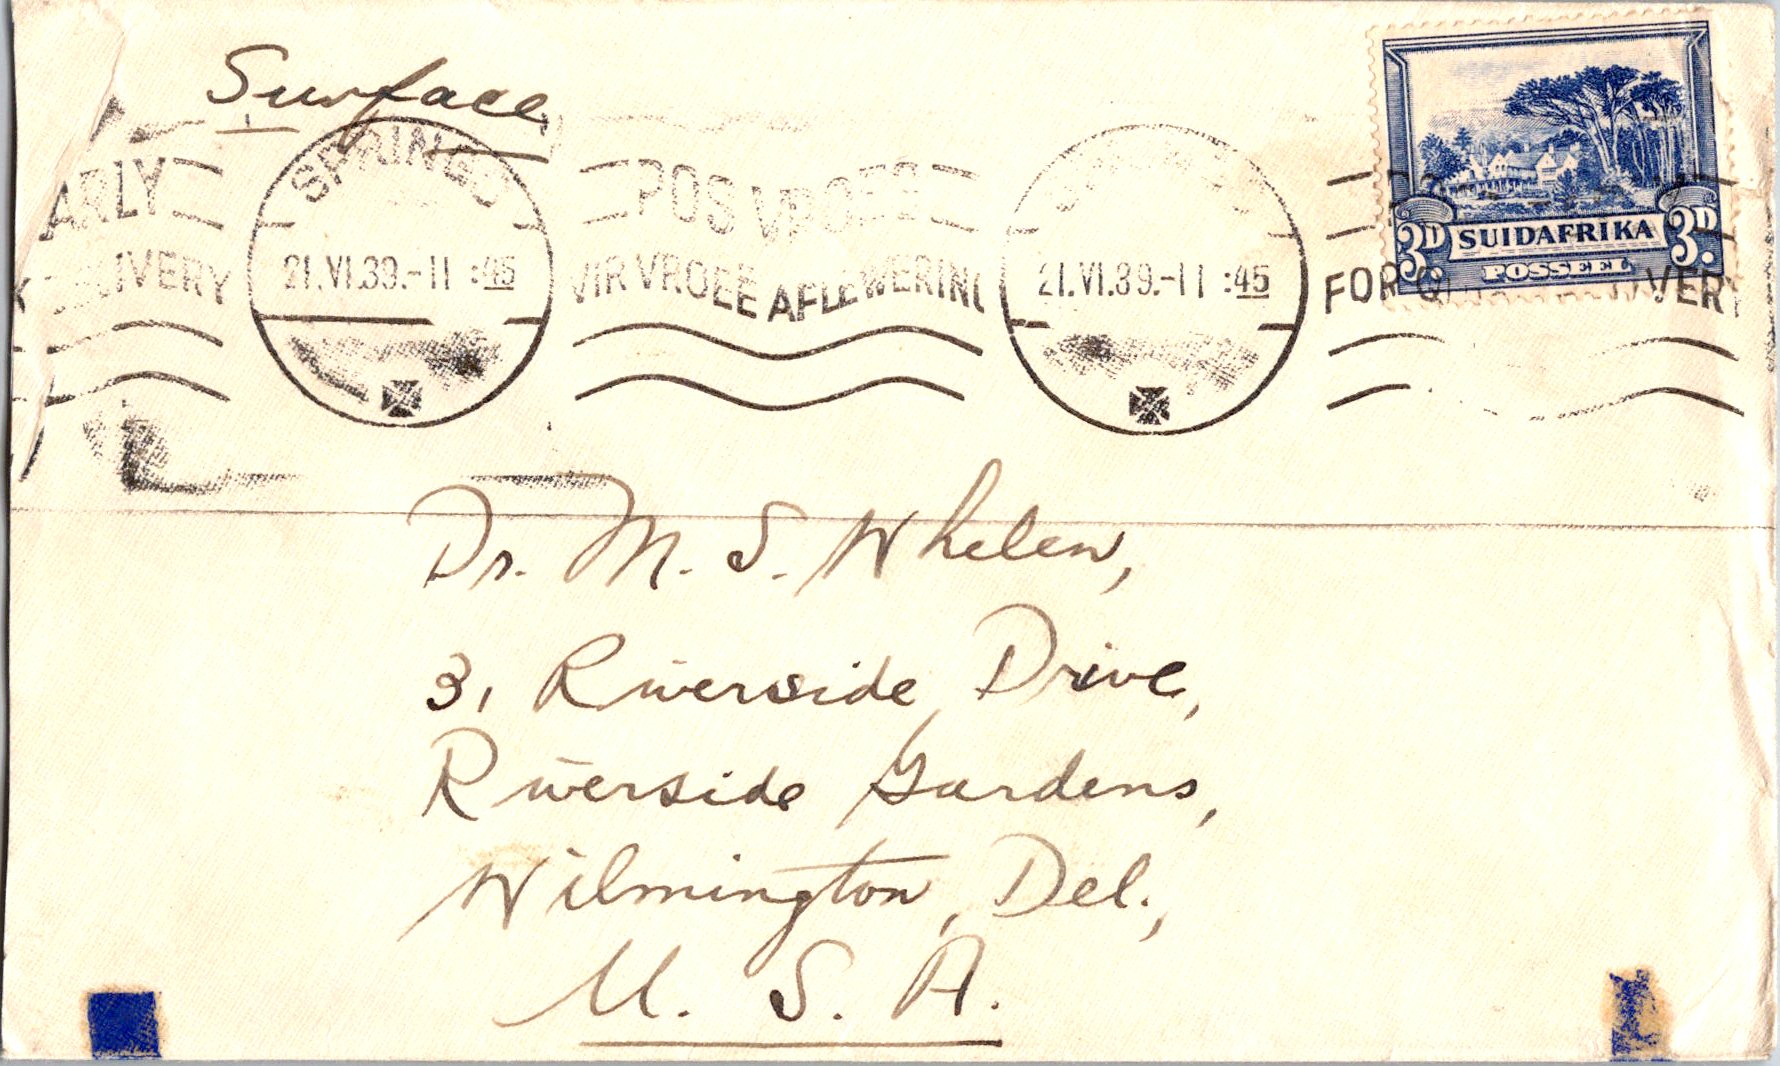 Surface
ARLY
LIVERY
SPRINGS
21.VI.39.-11 :45
POS VROEG
VIR VROEE AFLEWERING
21.VI.39.-11 :45
FOR
3D SUIDAFRIKA 3D.
POSSEEL
Dr. M. S. Whelen,
3, Riverside Drive,
Riverside Gardens,
Wilmington, Del.,
U. S. A.